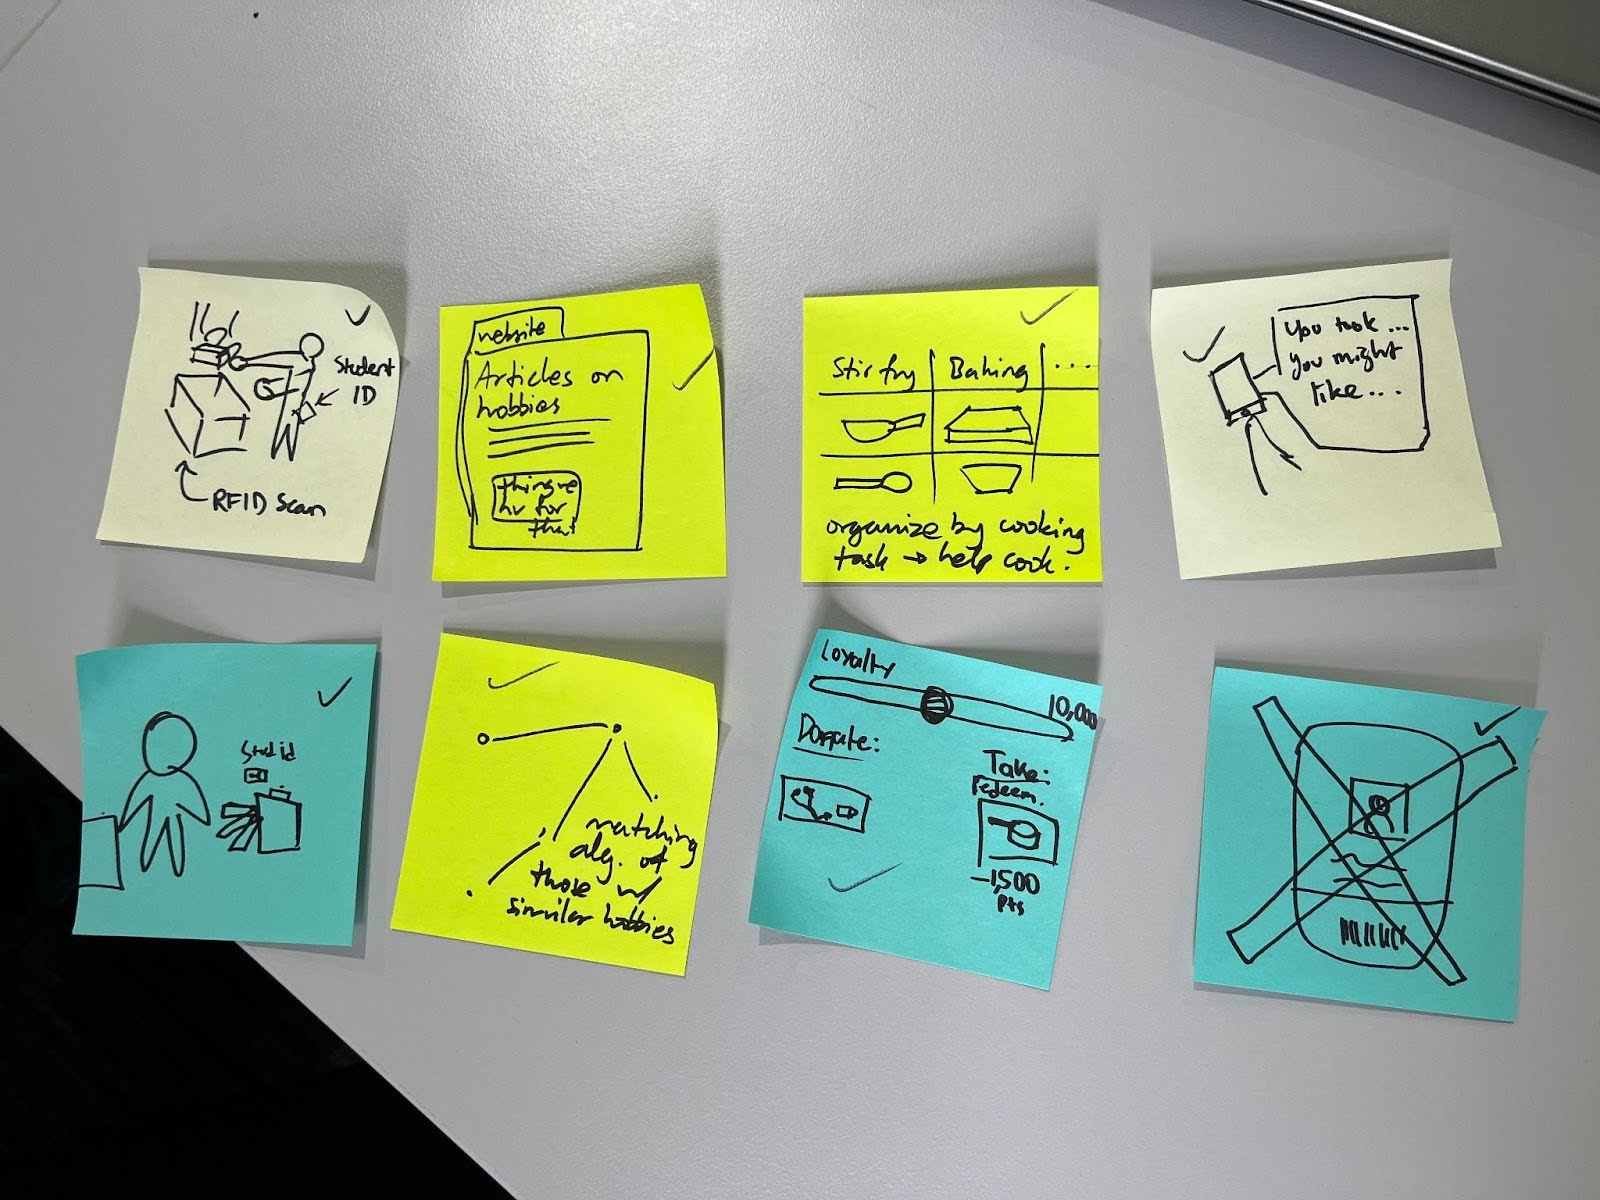 Student
ID
RFID Scan
website
Articles on
hobbies
things we
hv for
that
Stir fry
Baking
....
organize by cooking
task → help cook.
You took ...
you might
like...
Stud id
matching
alg. of
those w/
similar hobbies
Loyalty
10,000
Donate:
Take:
redeem.
-1,500
pts